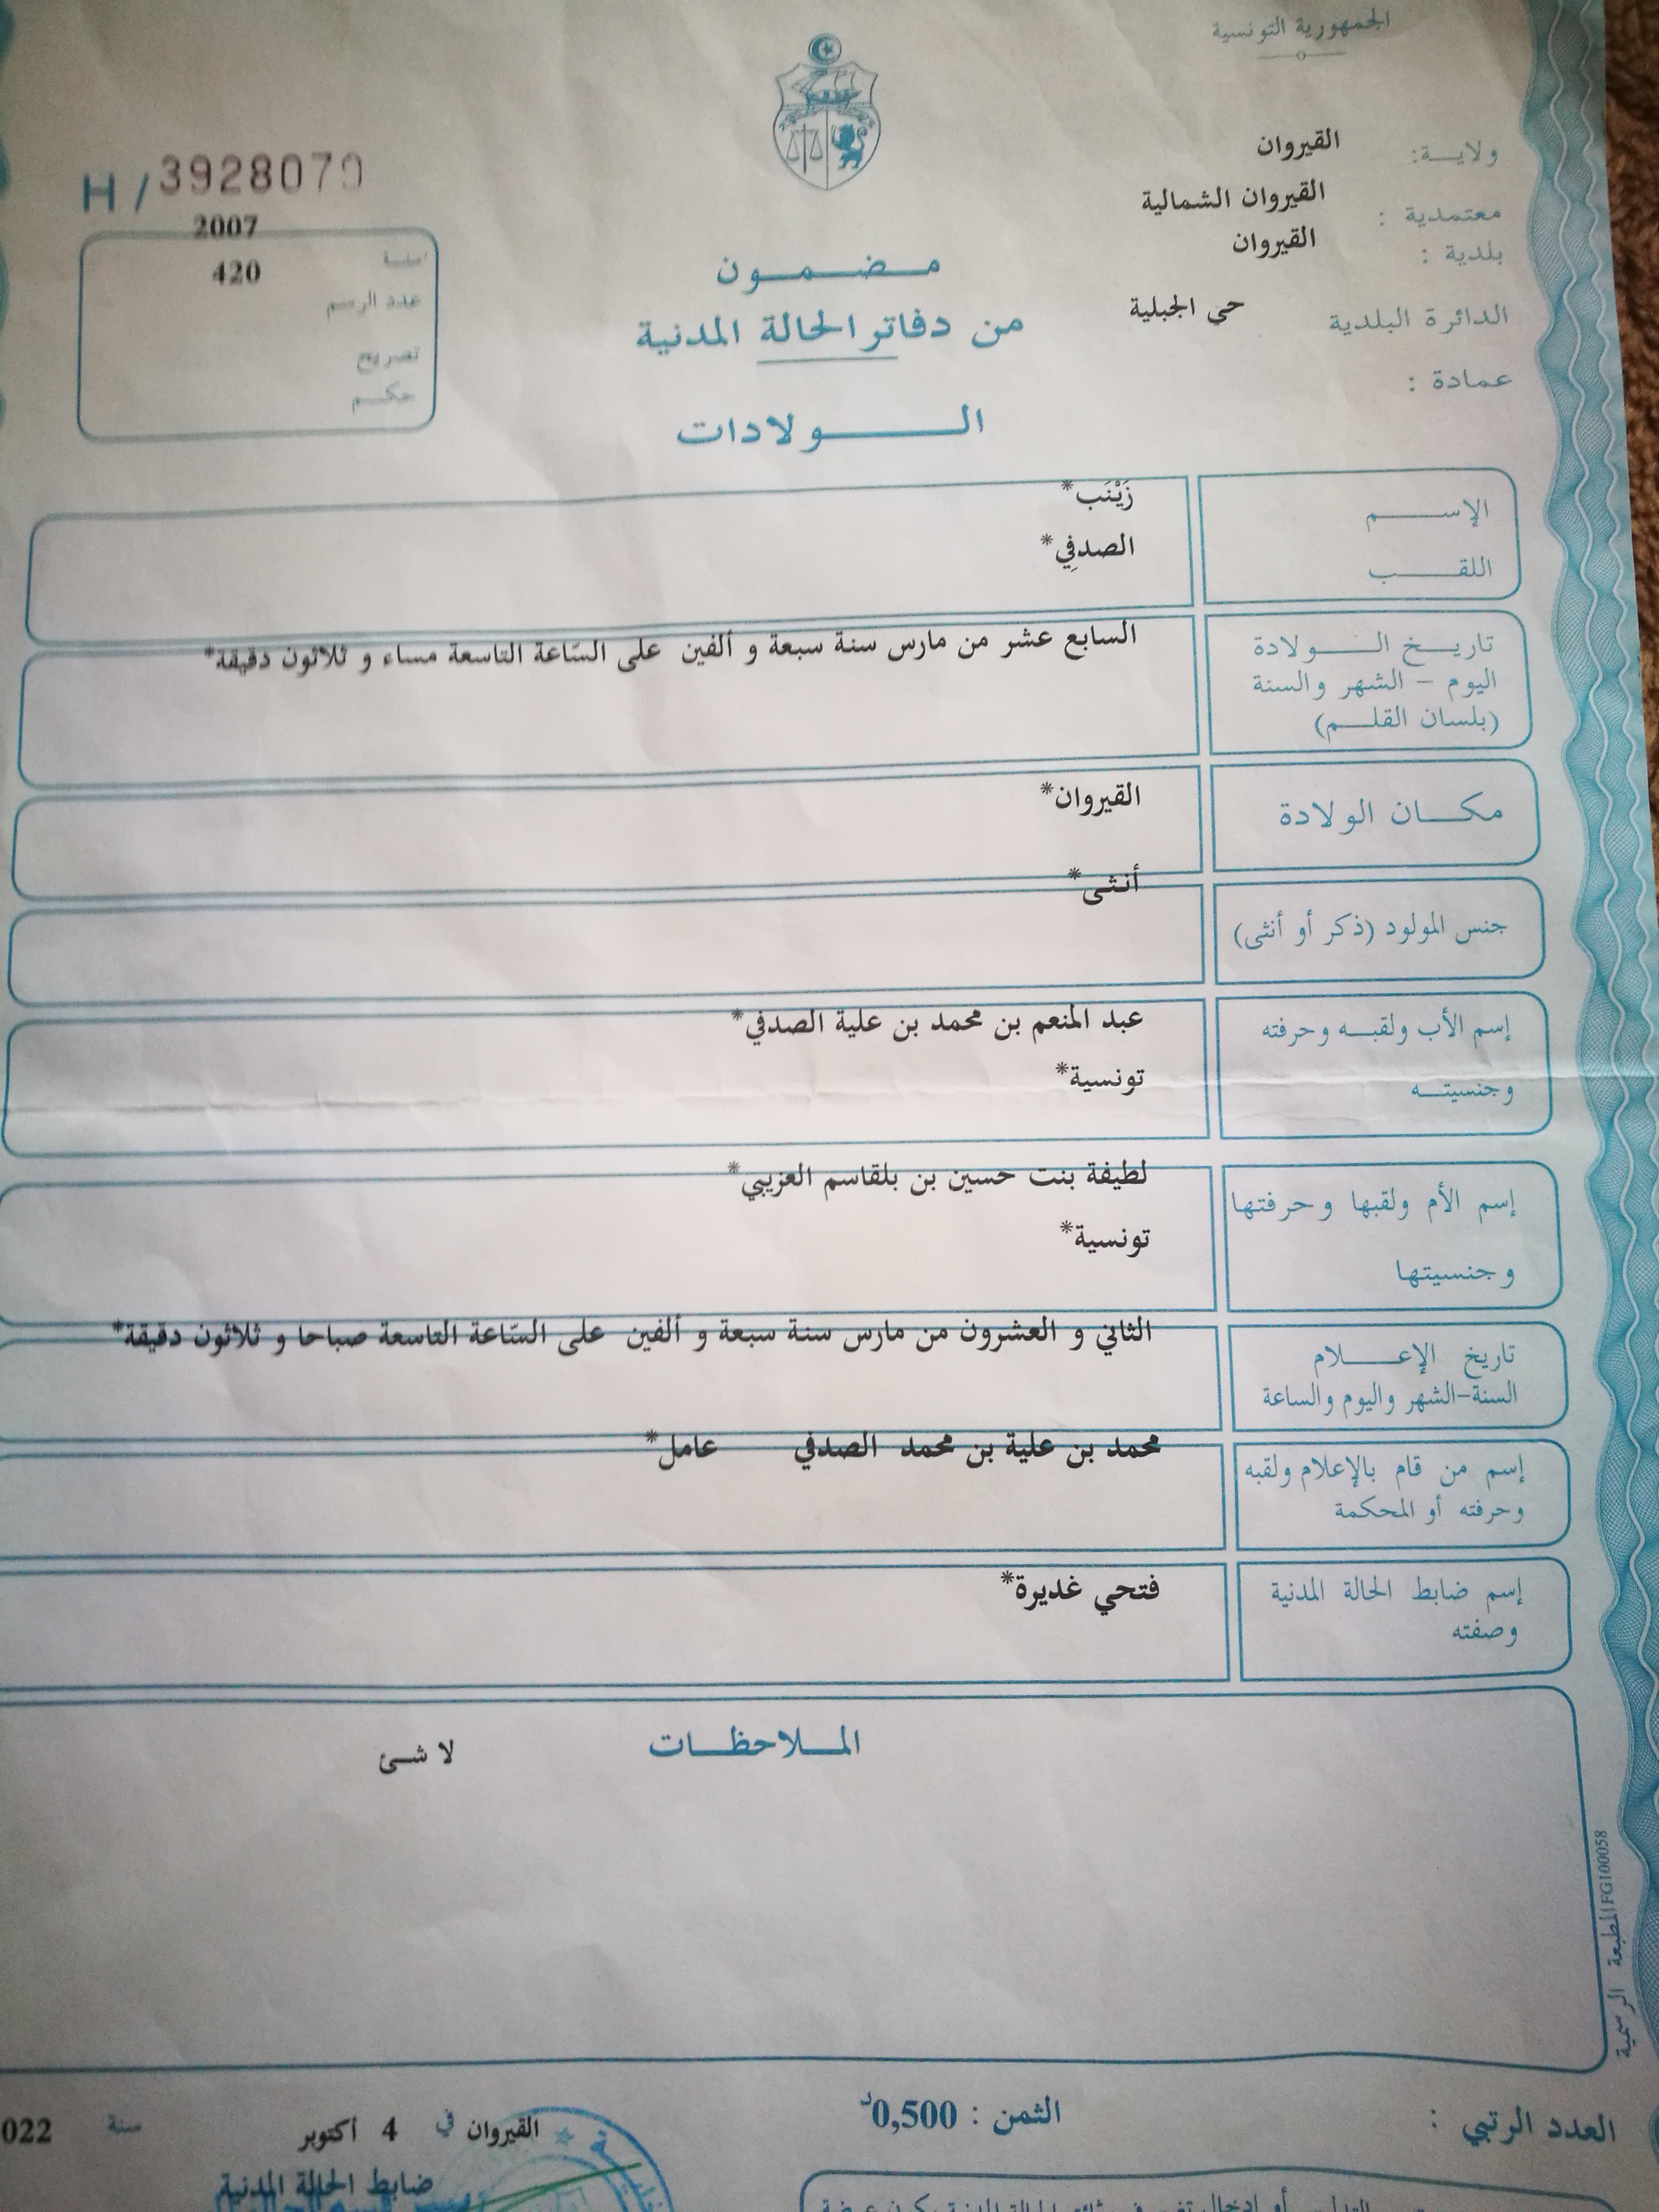 الجمهورية التونسية
ولايـــة: القيروان
معتمدية : القيروان الشمالية
بلدية : القيروان
الدائرة البلدية حي الجبلية
عمادة :
H/3928079
2007
420
عدد الرسم
تصريح
حكـــم
مـضـمـون
من دفاتر الحالة المدنية
الـــولادات
الإســـم زَيْنَب*
اللقـــب الصدفِي*
تاريـــخ الـــولادة
اليوم – الشهر والسنة
(بلسان القلـــم)
السابع عشر من مارس سنة سبعة و ألفين على السّاعة التاسعة مساء و ثلاثون دقيقة*
مكـــان الولادة القيروان*
جنس المولود (ذكر أو أنثى) أنثى*
إسم الأب ولقبـــه وحرفته عبد المنعم بن محمد بن علية الصدفي*
وجنسيتـــه تونسية*
إسم الأم ولقبها وحرفتها لطيفة بنت حسين بن بلقاسم العزيبي*
وجنسيتها تونسية*
تاريخ الإعـــلام
السنة-الشهر واليوم والساعة
الثاني و العشرون من مارس سنة سبعة و ألفين على السّاعة التاسعة صباحا و ثلاثون دقيقة*
إسم من قام بالإعلام ولقبه
وحرفته أو المحكمة
محمد بن علية بن محمد الصدفي عامل*
إسم ضابط الحالة المدنية
وصفته
فتحي غديرة*
الملاحظـــات
لا شئ
المطبعة الرسمية FG100058
العدد الرتبي :
الثمن : 0,500د
القيروان في 4 أكتوبر سنة 022
ضابط الحالة المدنية